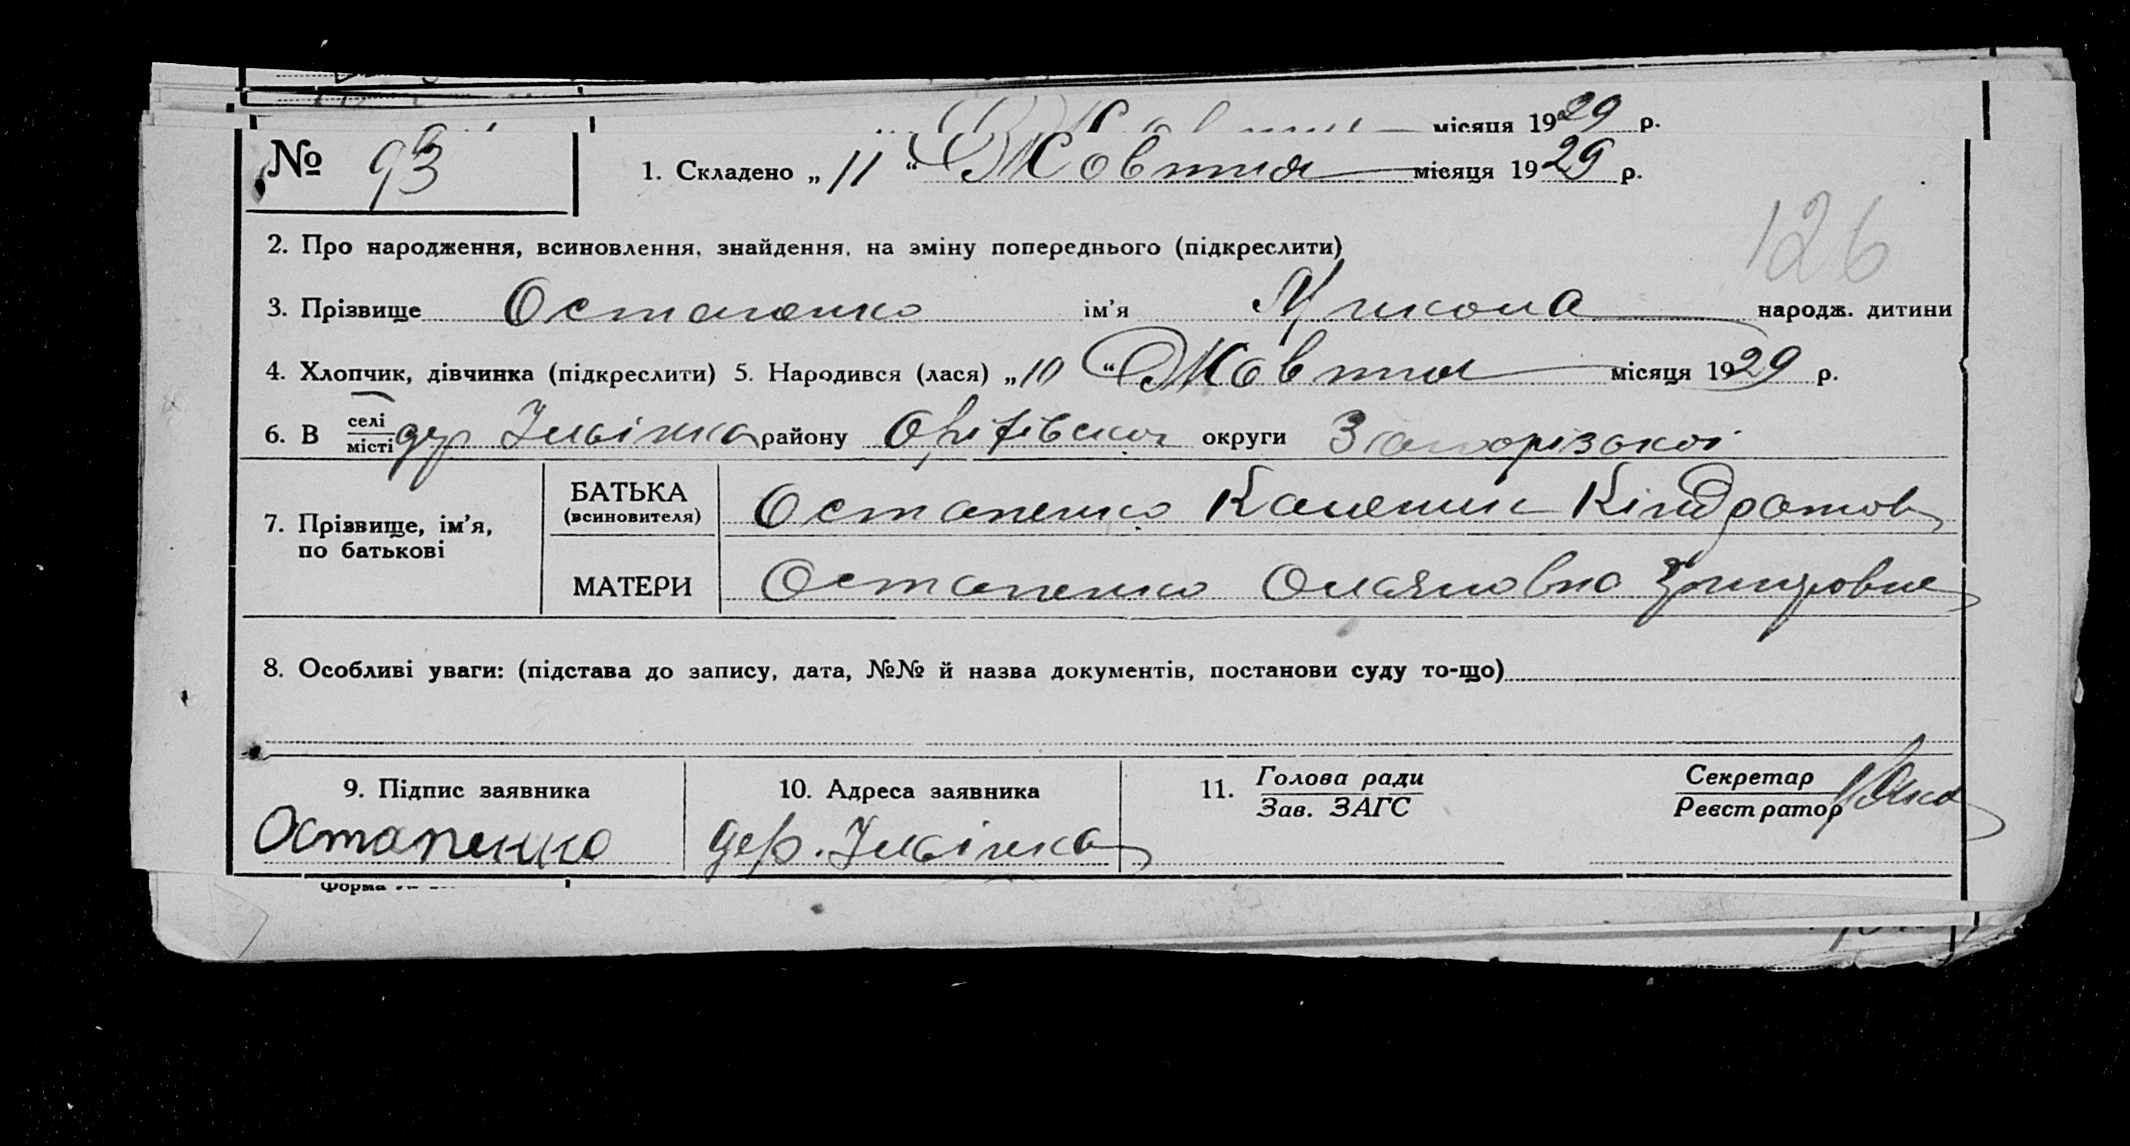 місяця 1929 р.
№ 93
1. Складено „11“ Жовтня місяця 1929 р.
126
2. Про народження, всиновлення, знайдення, на зміну попереднього (підкреслити)
3. Прізвище Остапенко ім’я Микола народж. дитини
4. Хлопчик, дівчинка (підкреслити) 5. Народився (лася) „10“ Жовтня місяця 1929 р.
6. В селі місті дер Ільінка району округи Запорізької
7. Прізвище, ім’я, по батькові
БАТЬКА (всиновителя) Остапенко Каленик Кіндратов
МАТЕРИ Остапенко
8. Особливі уваги: (підстава до запису, дата, №№ й назва документів, постанови суду то-що)
9. Підпис заявника
Остапенко
10. Адреса заявника
дер. Ільінка
11. Голова ради
Зав. ЗАГС
Секретар
Реєстратор
Форма